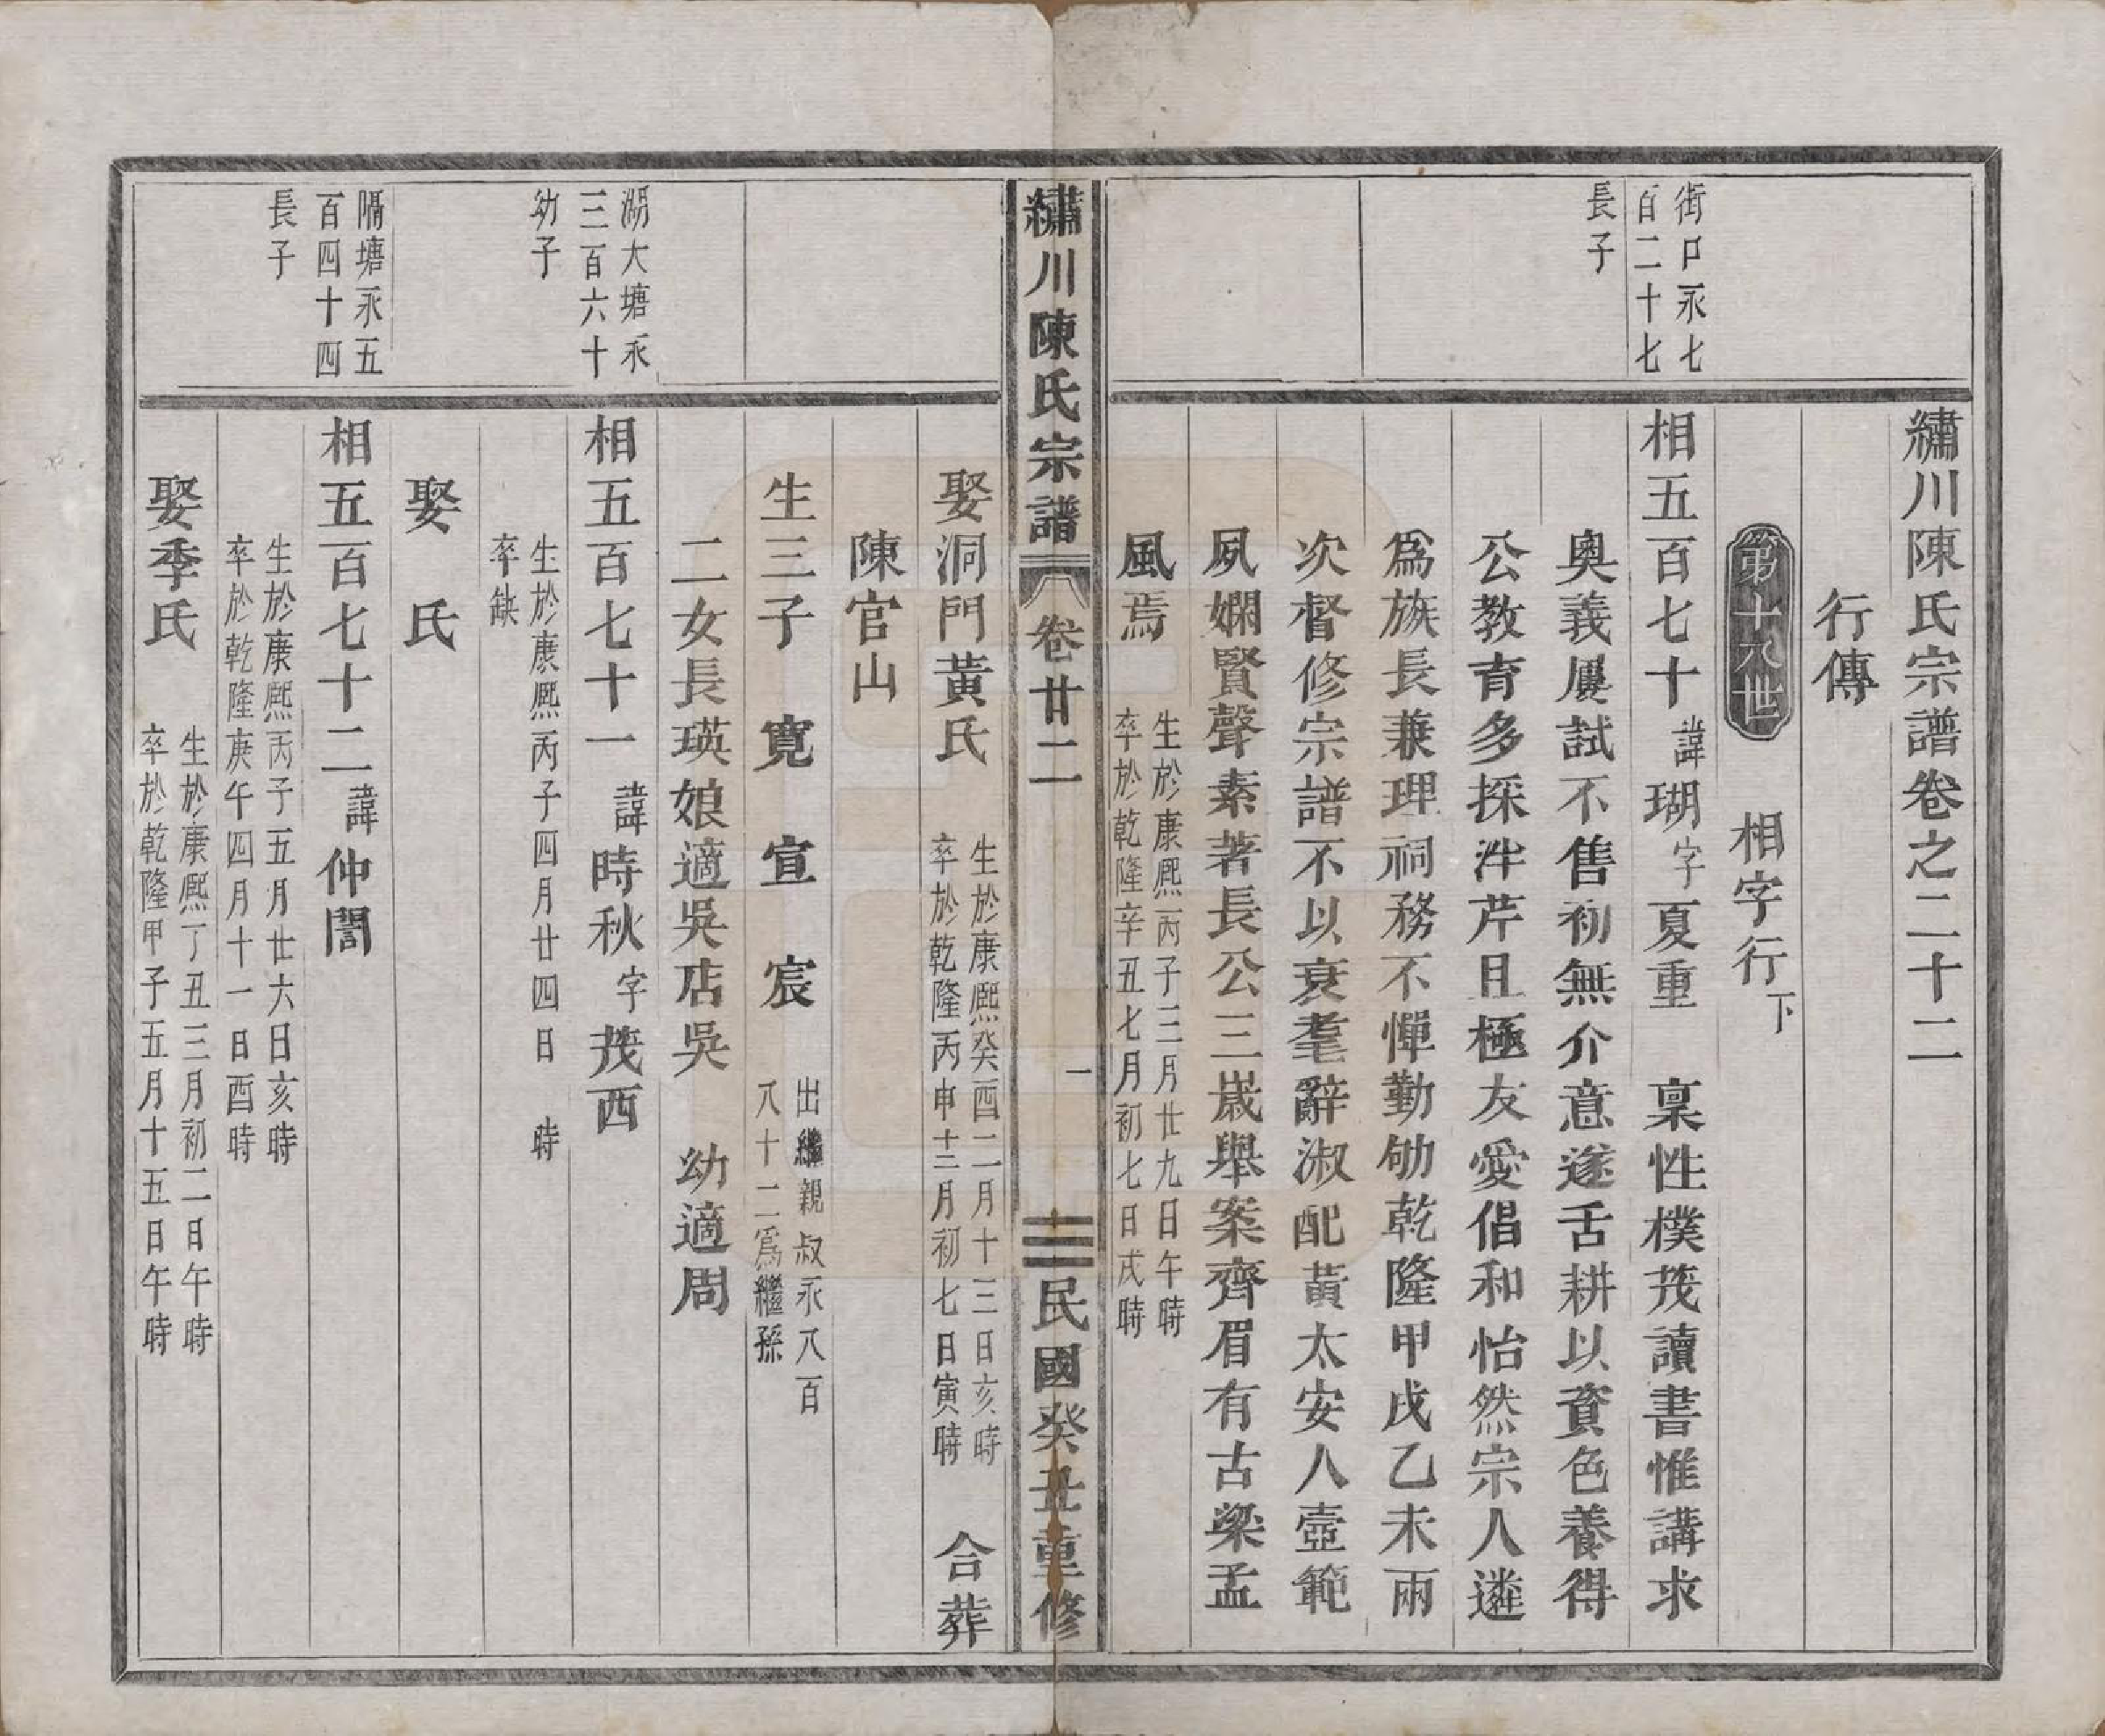 繡川陳氏宗譜卷之二十二
行傳
第十八世
相字行下
街口永七
百二十七
長子
相五百七十諱瑚字夏重　稟性樸茂讀書惟講求
奧義屢試不售初無介意遂舌耕以資色養得
公教育多採泮芹且極友愛倡和怡然宗人遴
爲族長兼理祠務不憚勤劬乾隆甲戌乙未兩
次督修宗譜不以衰耄辭淑配黃太安人壼範
夙嫻賢聲素著長公三歲舉案齊眉有古梁孟
風焉
生於康熙丙子三月廿九日午時
卒於乾隆辛丑七月初七日戌時
繡川陳氏宗譜
卷廿二
一
民國癸丑重修
娶洞門黃氏
生於康熙癸酉二月十三日亥時
卒於乾隆丙申十二月初七日寅時
合葬
陳官山
生三子　寬　宣　宸
出繼親叔永八百
八十二爲繼孫
二女長瑛娘適吳店吳　幼適周
湖大塘永
三百六十
幼子
相五百七十一諱時秋字茂西
生於康熙丙子四月廿四日　時
卒缺
娶　氏
隔塘永五
百四十四
長子
相五百七十二諱仲誾
生於康熙丙子五月廿六日亥時
卒於乾隆庚午四月十一日酉時
娶季氏
生於康熙丁丑三月初二日午時
卒於乾隆甲子五月十五日午時